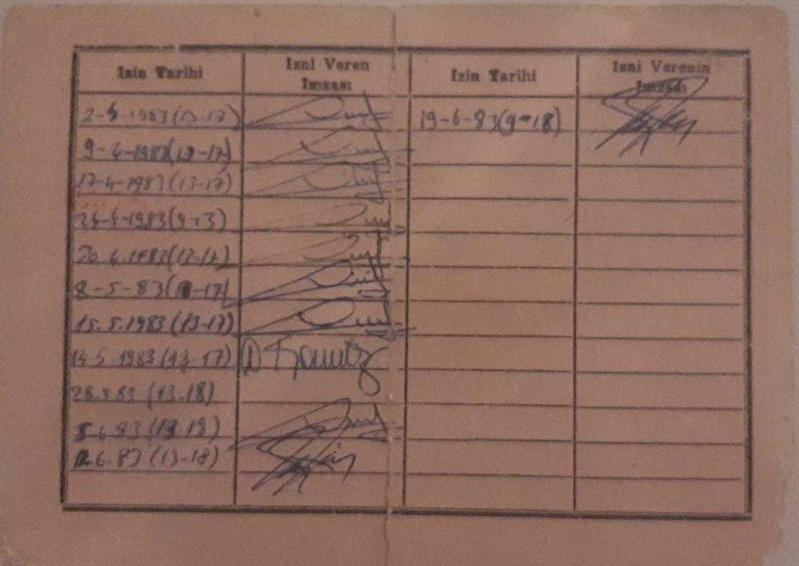 Izin Tarihi
Izni Veren
Imzası
Izin Tarihi
Izni Verenin
Imzası
2-4-1983(13-17)
19-6-83(9-18)
9-4-1983(13-17)
17-4-1983(13-17)
24-4-1983(9-13)
30.4.1983(13-17)
8-5-83(13-17)
15.5.1983(13-17)
14-5-1983(13-17)
28.5.83 (13-18)
5.6.83(13-18)
12.6.83 (13-18)